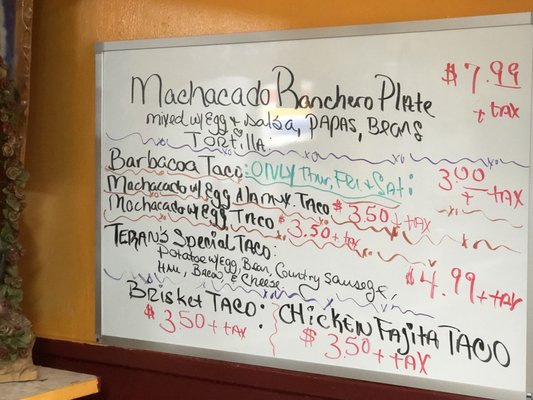 Machacado Ranchero Plate $7.99
mixed w/ Egg & Salsa, PAPAS, BEANS + TAX
TorTilla
Barbacoa Taco: ONLY Thur, Fri & Sat: 3.00 + TAX
Machacado w/ Egg TACO $3.50 + TAX
Machacado w/ Egg TACO $3.50 + TAX
TERAN'S Special TACO:
Potato w/ Egg, Bean, Country Sausage, $4.99 + TAX
Ham, Bacon & Cheese
Brisket TACO: CHICKEN FAjiTA TACO
$3.50 + TAX $3.50 + TAX